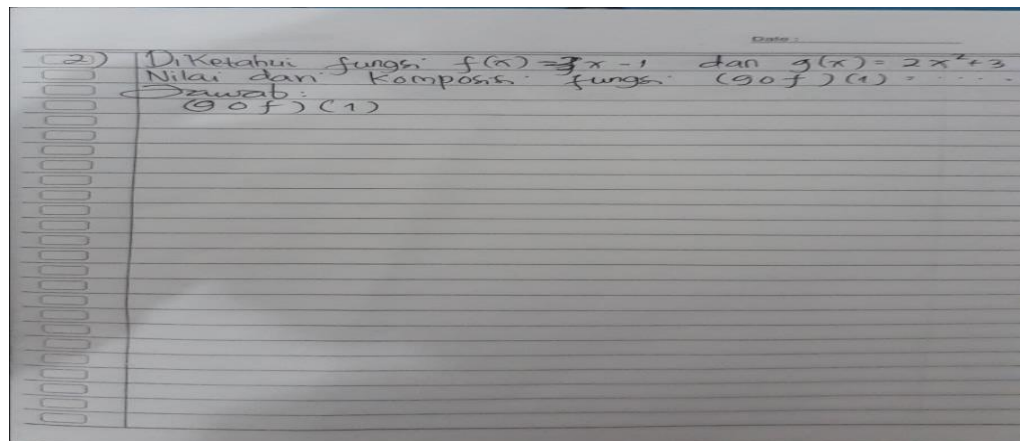 Date :
2) Diketahui fungsi f(x) = 3x - 1 dan g(x) = 2x² + 3
Nilai dari komposisi fungsi (g o f)(1) = ....
Jawab :
(g o f)(1)